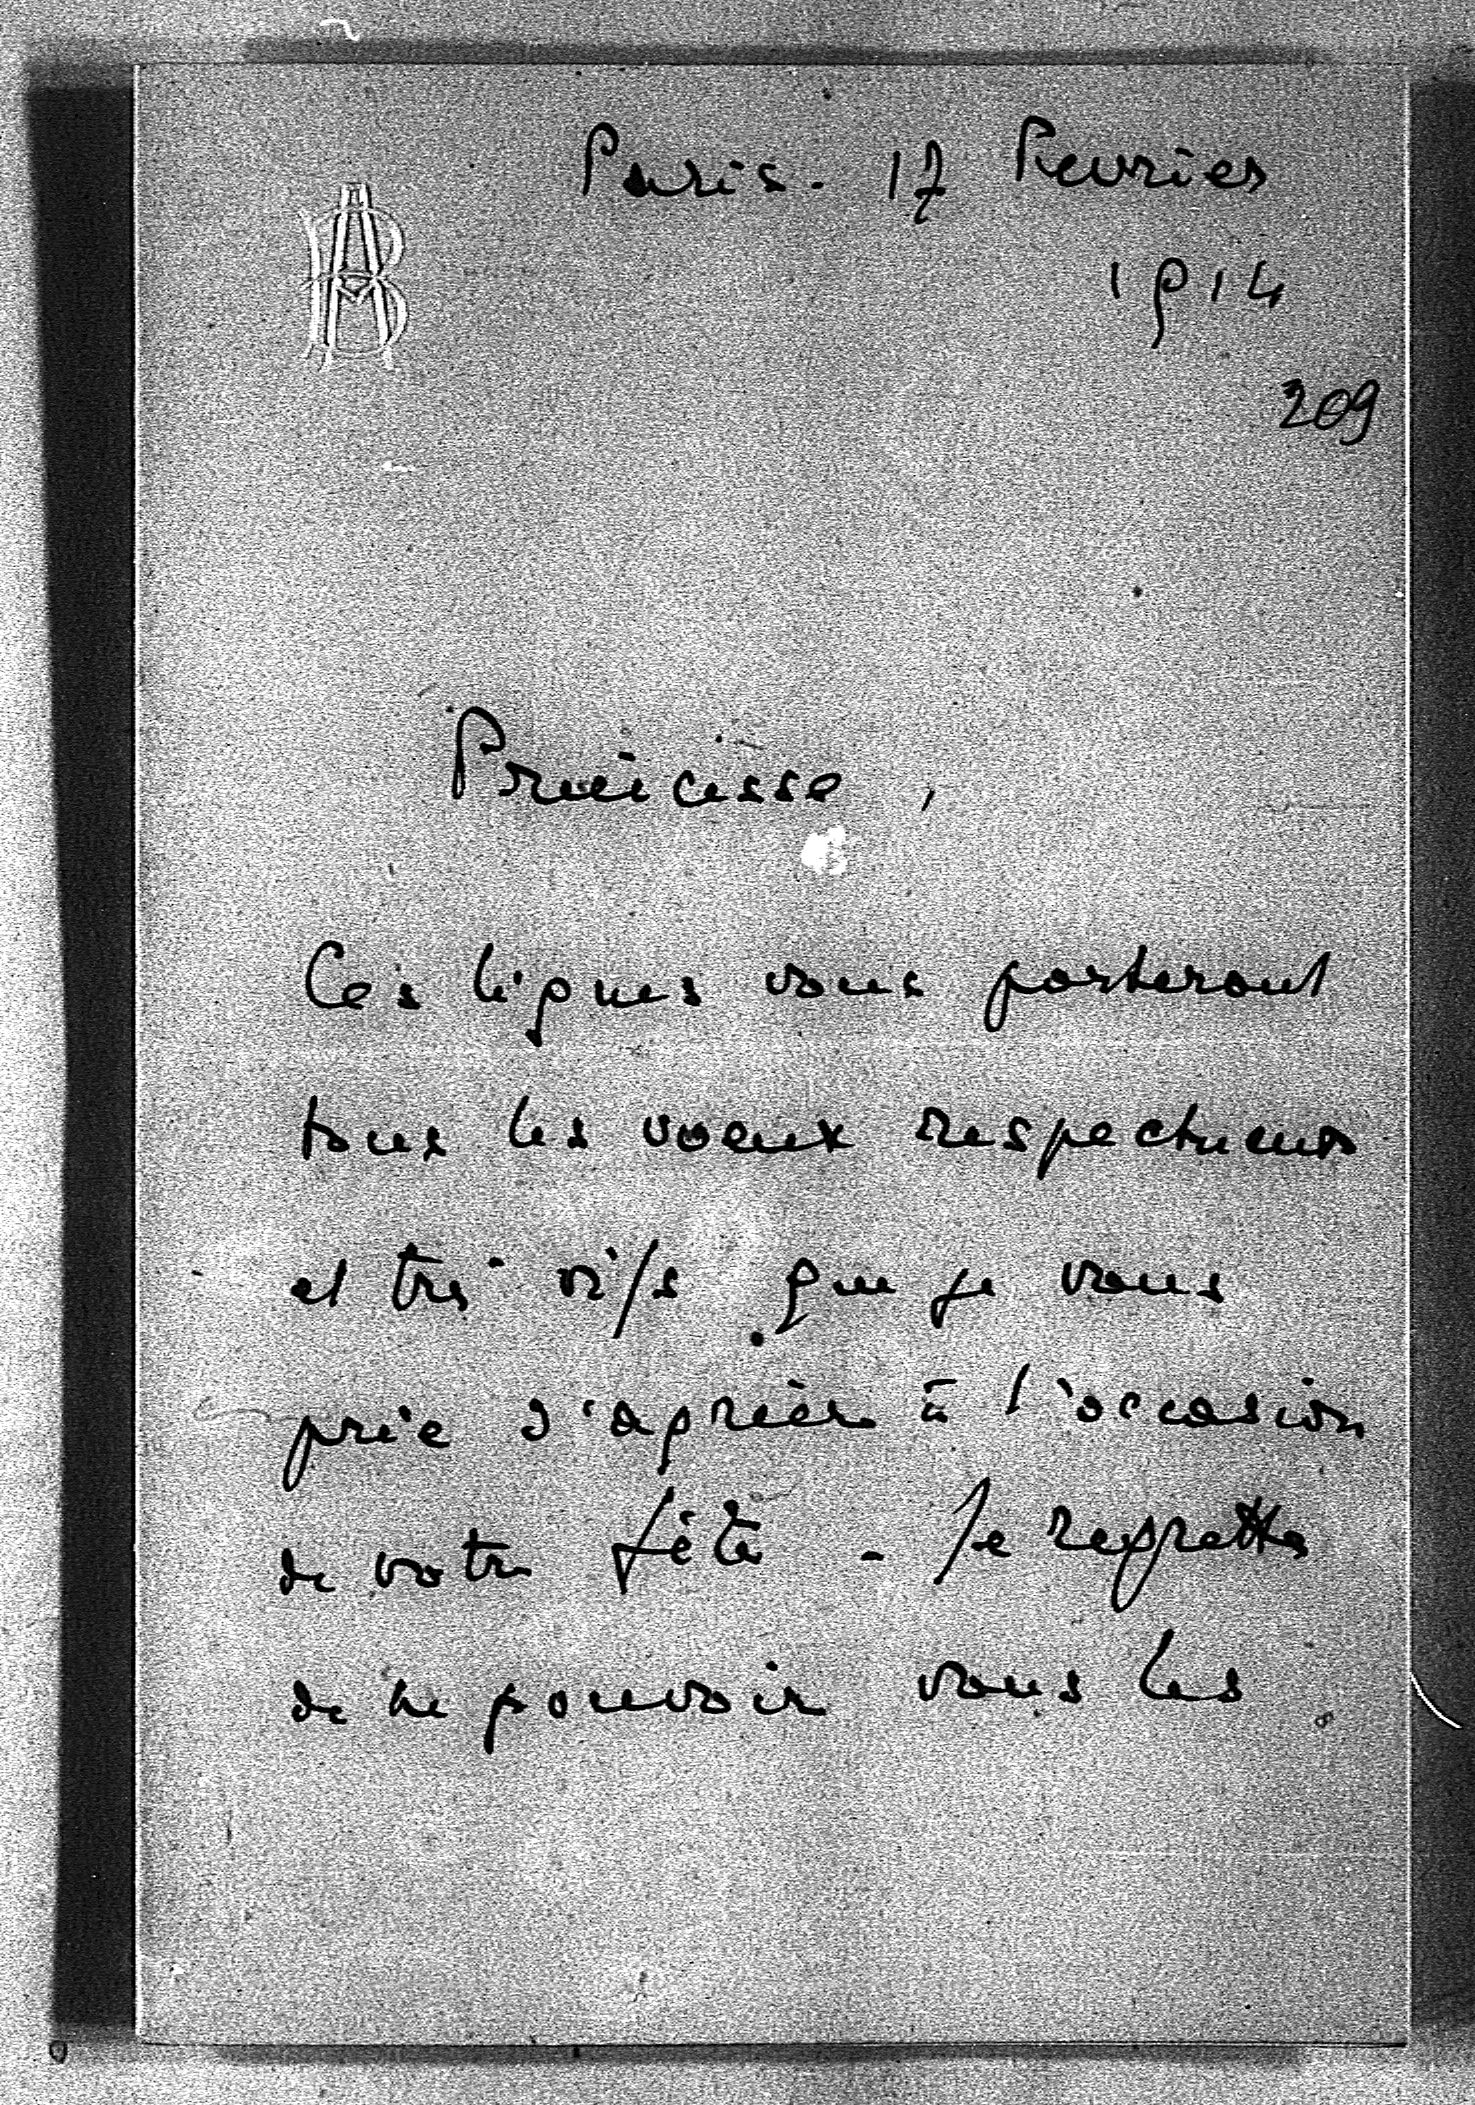 Paris. 17 Fevrier
1914
209
Princesse,
Ces lignes vous porteront
tous les voeux respectueux
et très vifs que je vous
prie d'agréer à l'occasion
de votre fête - Je regrette
de ne pouvoir vous les